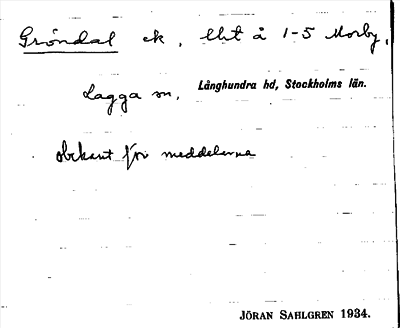 Gröndal ek, lht å 1-5 Morby,
Lagga sn, Långhundra hd, Stockholms län.
obekant för meddelarna
JÖRAN SAHLGREN 1934.